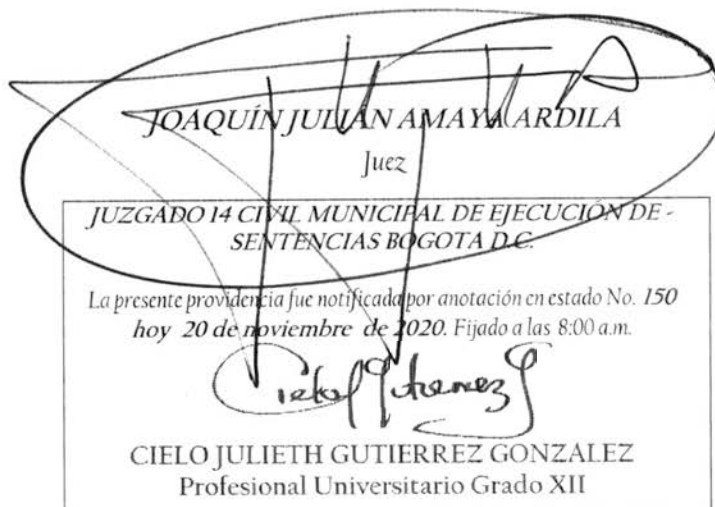 JOAQUÍN JULIÁN AMAYA ARDILA
Juez
JUZGADO 14 CIVIL MUNICIPAL DE EJECUCIÓN DE -
SENTENCIAS BOGOTA D.C.
La presente providencia fue notificada por anotación en estado No. 150
hoy 20 de noviembre de 2020. Fijado a las 8:00 a.m.
Cielo J Gutierrez G
CIELO JULIETH GUTIERREZ GONZALEZ
Profesional Universitario Grado XII